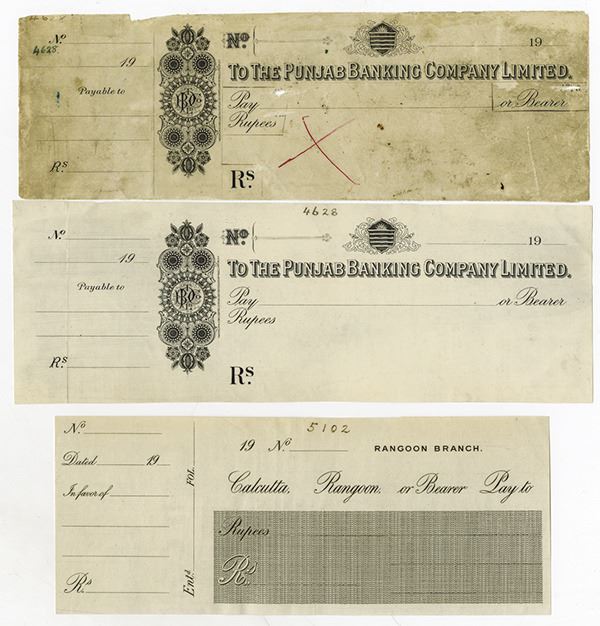 4628
Nº
4628
19
Payable to
Rs
Nº
19
TO THE PUNJAB BANKING COMPANY LIMITED.
Pay or Bearer
Rupees
Rs.
4628
Nº
19
Payable to
Rs
Nº
19
TO THE PUNJAB BANKING COMPANY LIMITED.
Pay or Bearer
Rupees
Rs.
Nº
Dated 19
In favor of
Rs
FOL.
Entd.
5102
19 Nº RANGOON BRANCH.
Calcutta. Rangoon. or Bearer Pay to
Rupees
Rs.